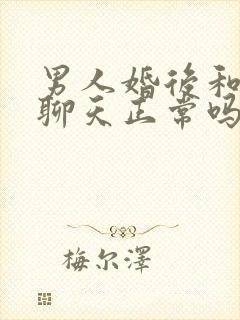 男人婚後和
聊天正常吗
梅尔澤